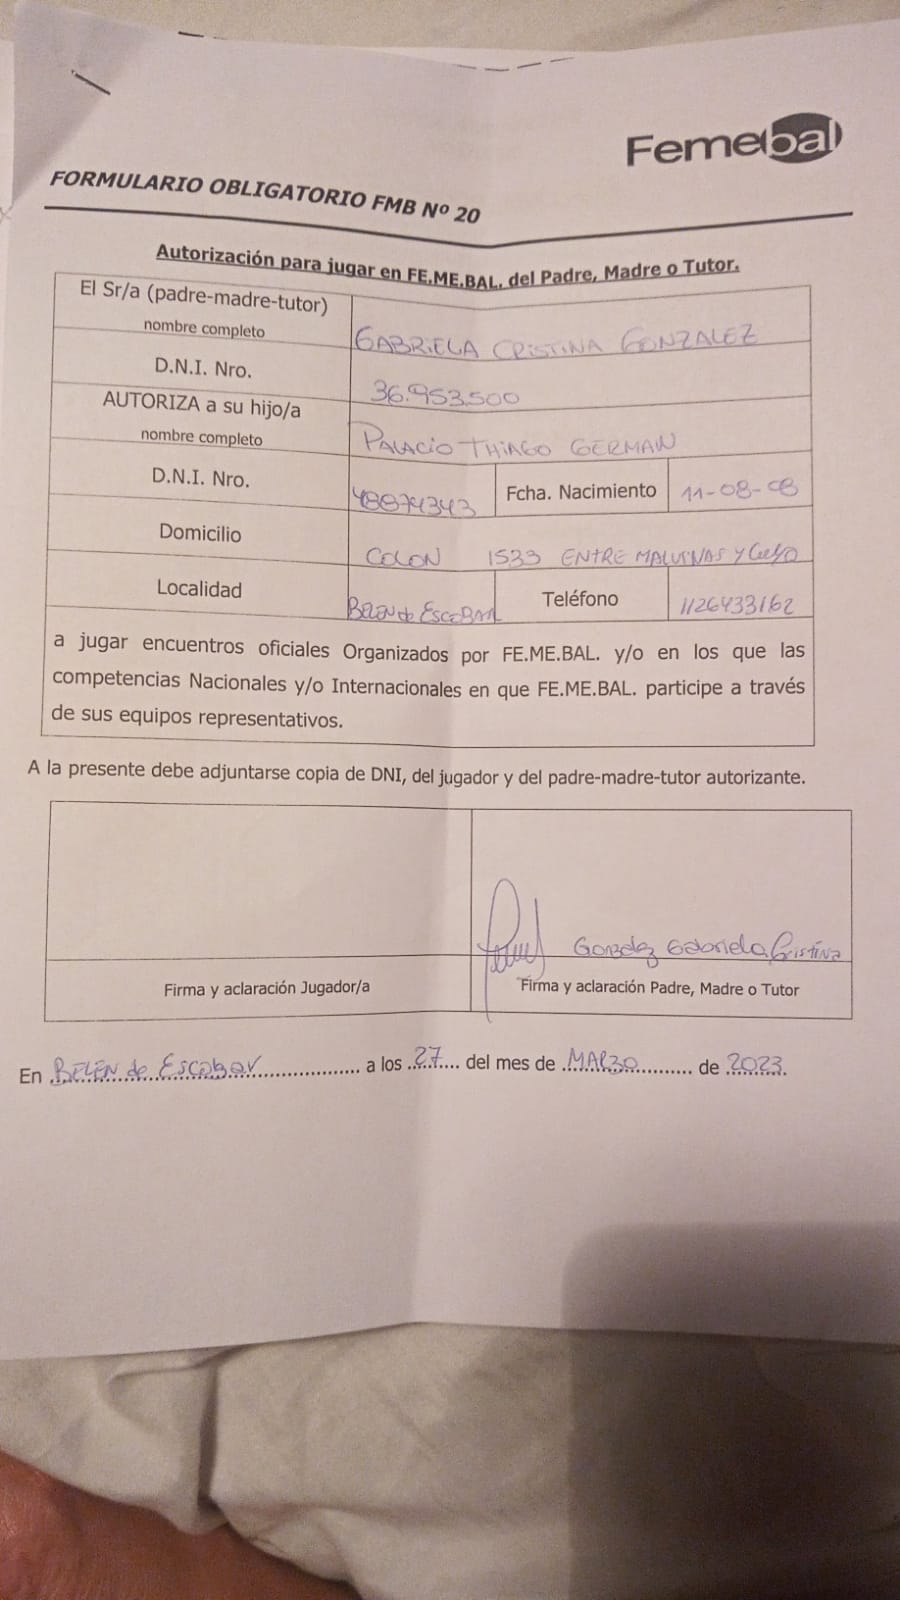 Femebal
FORMULARIO OBLIGATORIO FMB Nº 20
Autorización para jugar en FE.ME.BAL. del Padre, Madre o Tutor.
El Sr/a (padre-madre-tutor)
nombre completo
GABRIELA CRISTINA GONZALEZ
D.N.I. Nro.
36.953.500
AUTORIZA a su hijo/a
nombre completo
PALACIO THIAGO GERMAN
D.N.I. Nro.
48874343
Fcha. Nacimiento
11-08-08
Domicilio
COLON 1533 ENTRE MALVINAS Y
Localidad
BELEN de ESCOBAR
Teléfono
1126433162
a jugar encuentros oficiales Organizados por FE.ME.BAL. y/o en los que las
competencias Nacionales y/o Internacionales en que FE.ME.BAL. participe a través
de sus equipos representativos.
A la presente debe adjuntarse copia de DNI, del jugador y del padre-madre-tutor autorizante.
Gonzalez Gabriela Cristina
Firma y aclaración Jugador/a
Firma y aclaración Padre, Madre o Tutor
En BELEN de Escobar a los 27 del mes de MARZO de 2023.